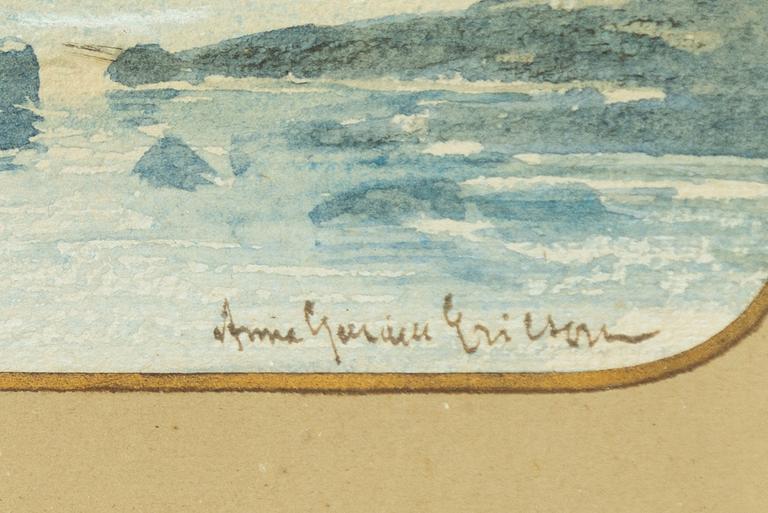 Anna Gardell Ericson